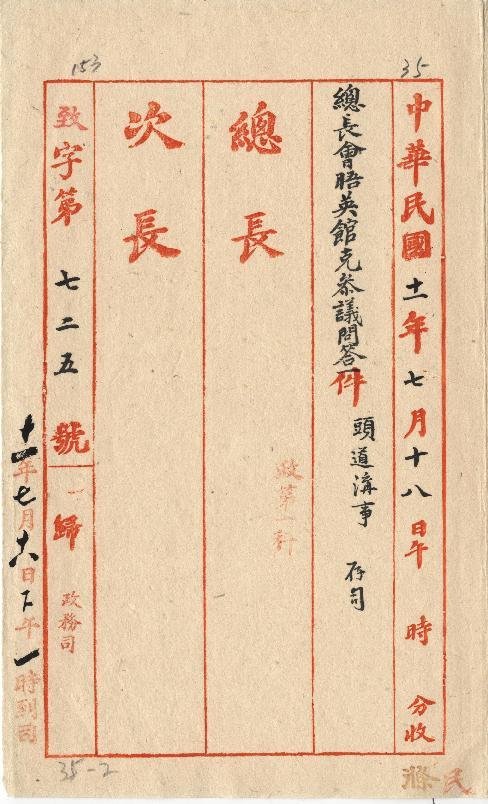 153
35
中華民國十一年七月十八日午 時 分收
總長會晤英館克參議問答一件 頭道溝事 存司
總長
政第一科
次長
致字第七二五號 一 歸 政務司
十一年七月十八日下午一時到司
35-2
民